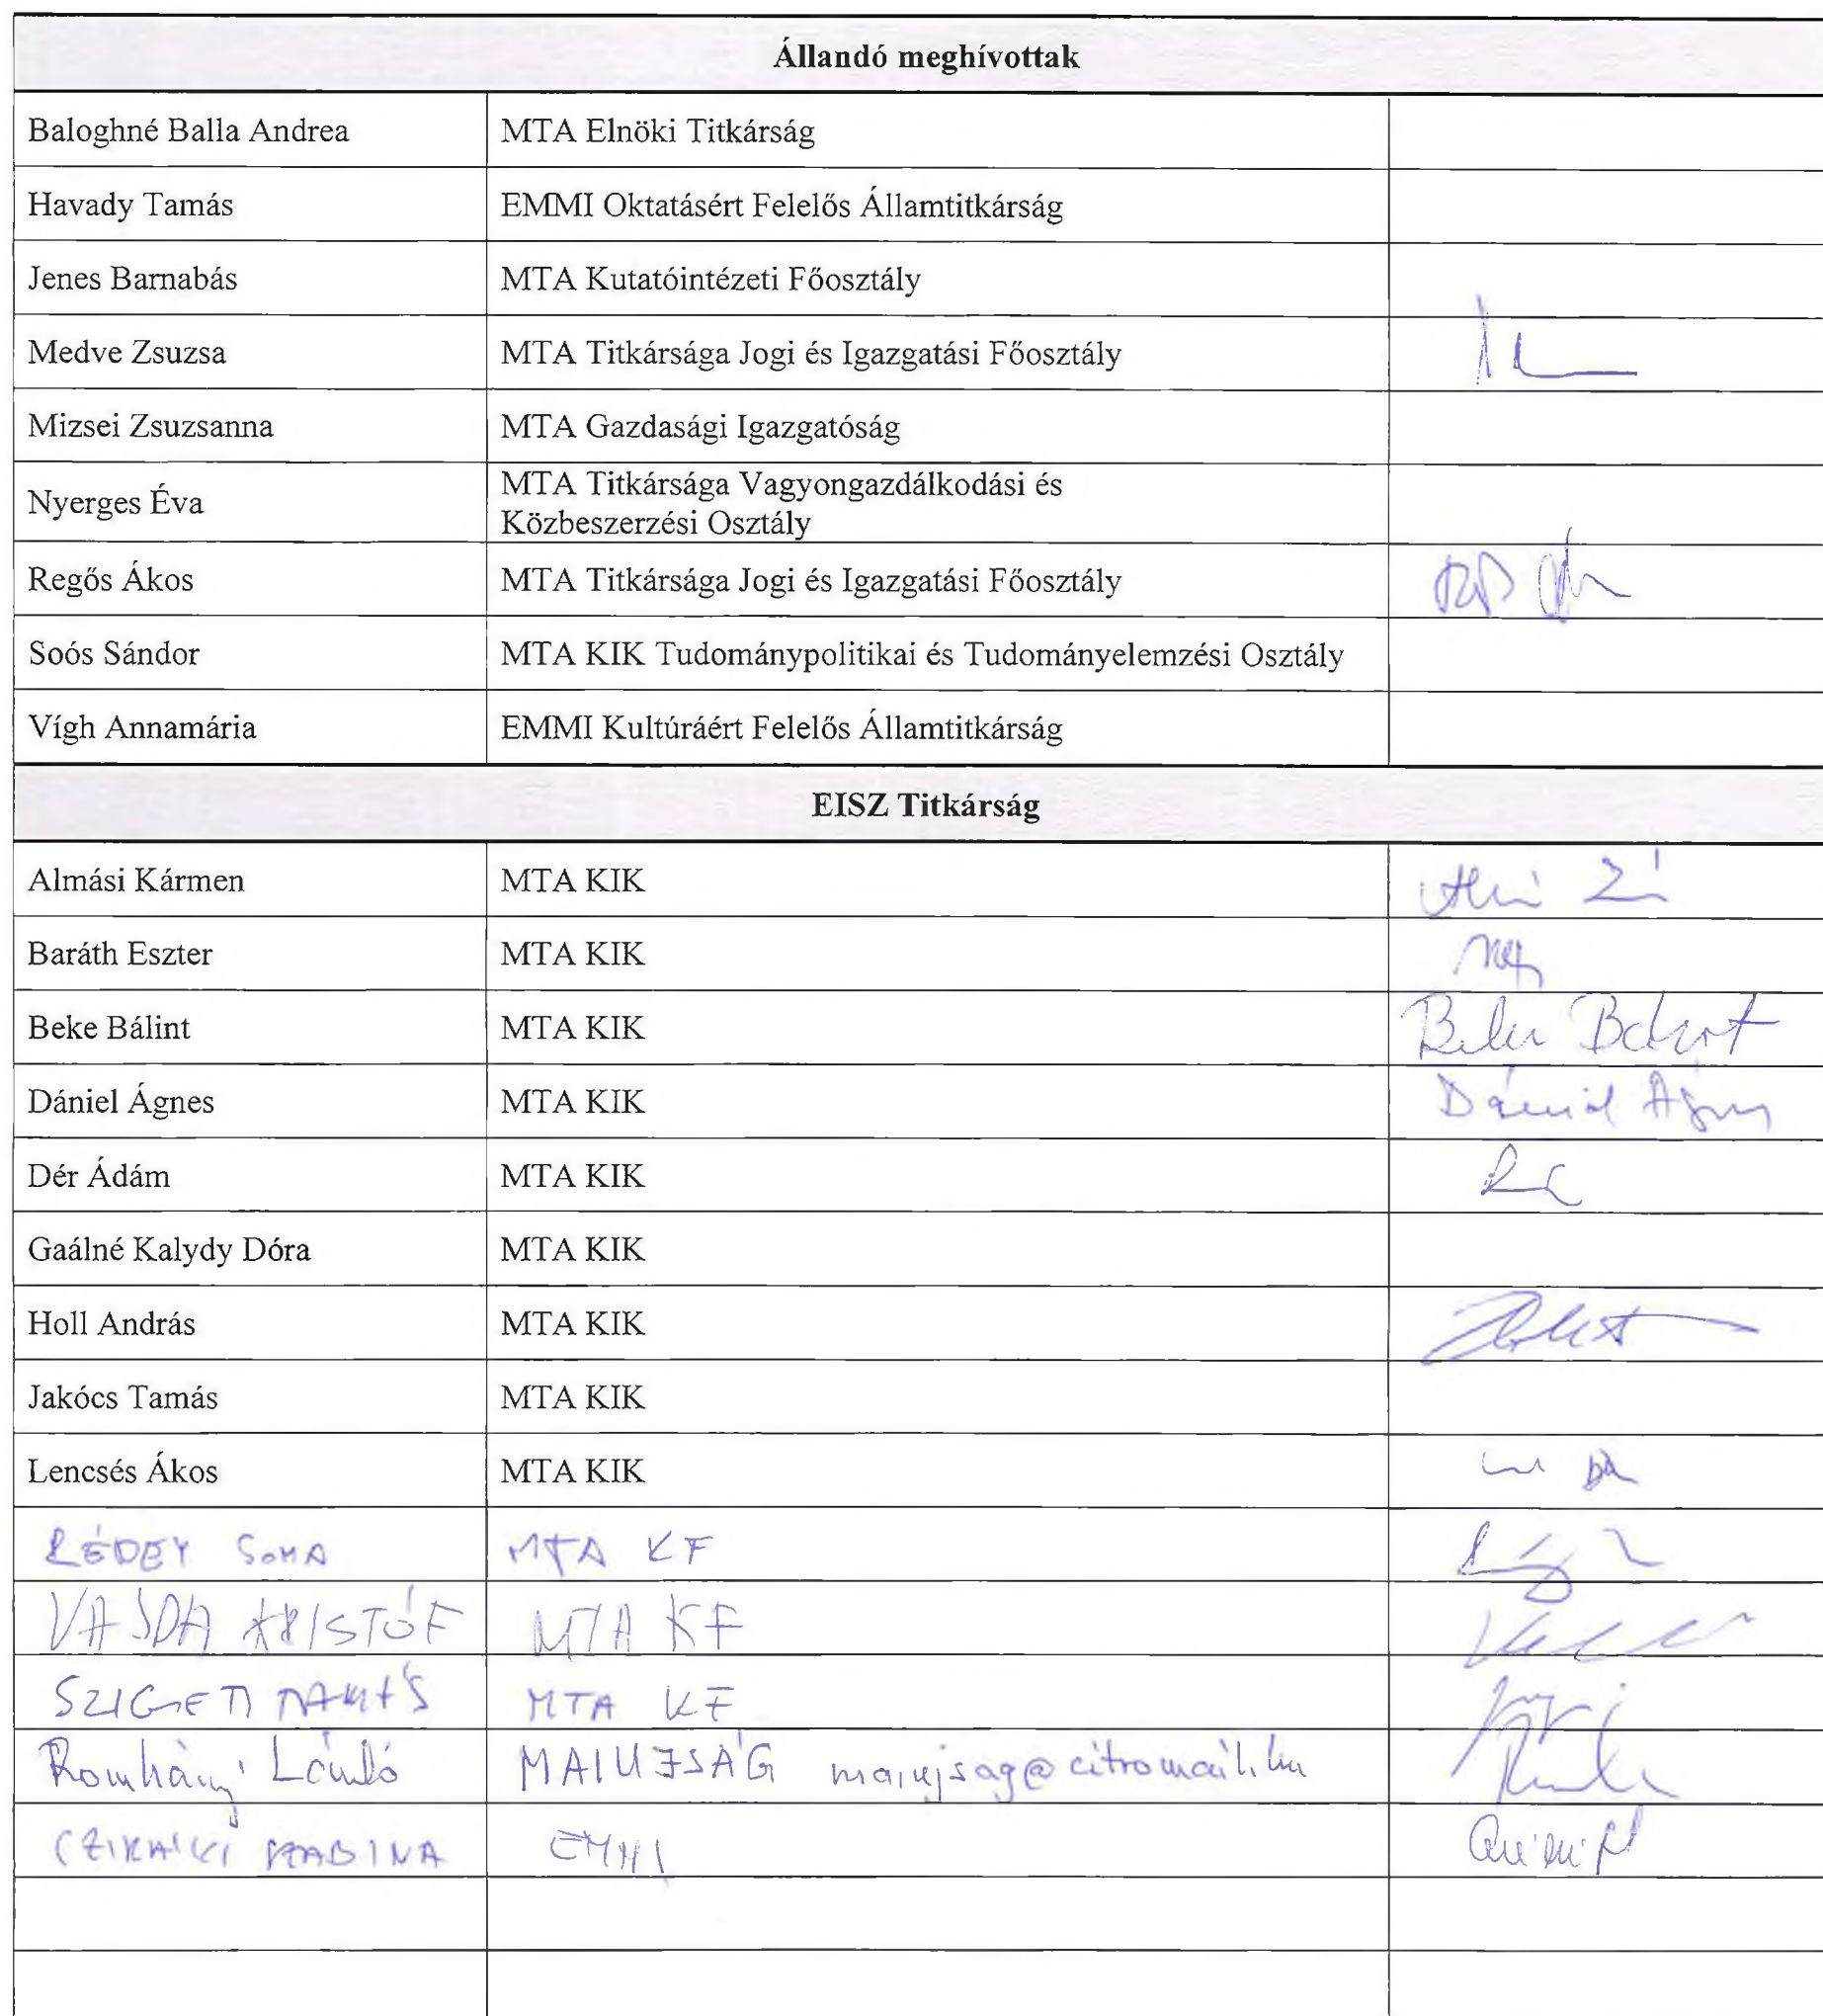 Állandó meghívottak
Baloghné Balla Andrea MTA Elnöki Titkárság
Havady Tamás EMMI Oktatásért Felelős Államtitkárság
Jenes Barnabás MTA Kutatóintézeti Főosztály
Medve Zsuzsa MTA Titkársága Jogi és Igazgatási Főosztály
Mizsei Zsuzsanna MTA Gazdasági Igazgatóság
Nyerges Éva MTA Titkársága Vagyongazdálkodási és
Közbeszerzési Osztály
Regős Ákos MTA Titkársága Jogi és Igazgatási Főosztály
Soós Sándor MTA KIK Tudománypolitikai és Tudományelemzési Osztály
Vígh Annamária EMMI Kultúráért Felelős Államtitkárság
EISZ Titkárság
Almási Kármen MTA KIK
Baráth Eszter MTA KIK
Beke Bálint MTA KIK Beke Bálint
Dániel Ágnes MTA KIK Dániel Ágnes
Dér Ádám MTA KIK
Gaálné Kalydy Dóra MTA KIK
Holl András MTA KIK
Jakócs Tamás MTA KIK
Lencsés Ákos MTA KIK
RÉDEY SOMA MTA KF
VAJDA KRISTÓF MTA KF
SZIGETI TAMÁS MTA KF
Romhányi László MAI UJSÁG maiujsag@citromail.hu
EMMI